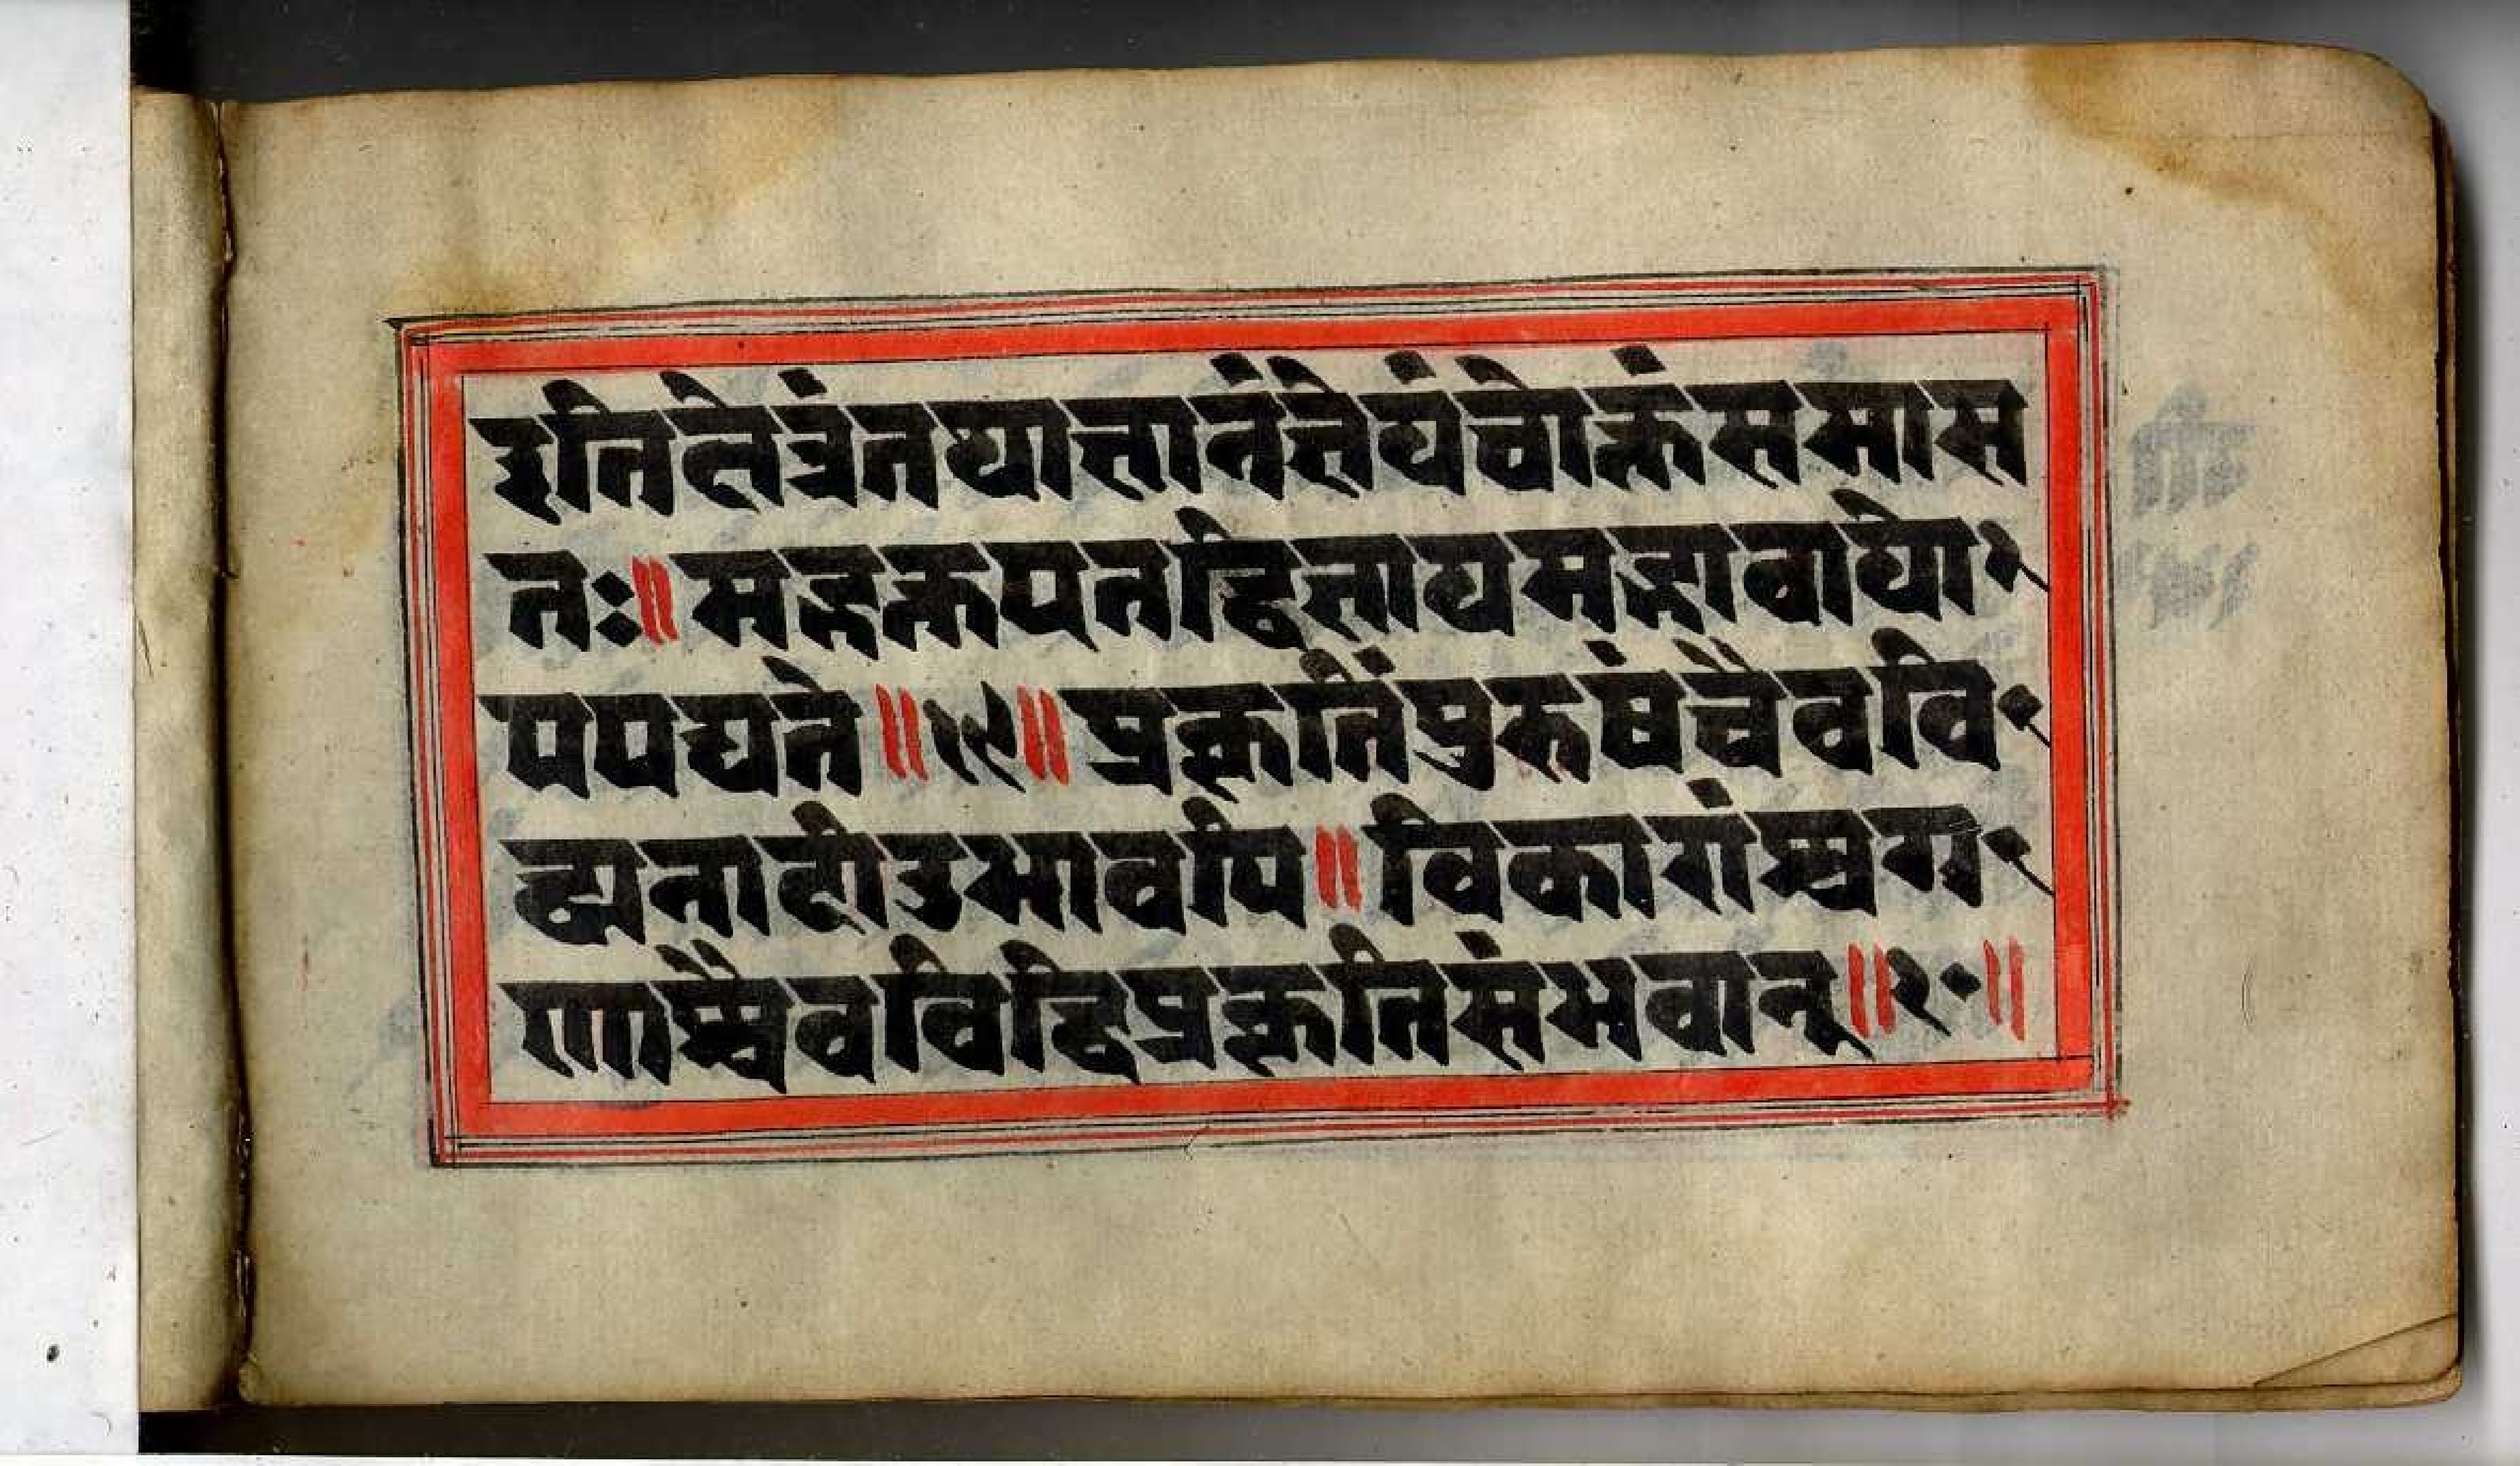 इतिक्षेत्रंतथाज्ञानंज्ञेयंचोक्तंसमास
तः॥मद्भक्तएतद्विज्ञायमद्भावायो
पपद्यते॥१९॥प्रकृतिंपुरुषंचैववि
द्ध्यनादीउभावपि॥विकारांश्चगु
णांश्चैवविद्धिप्रकृतिसंभवान्॥२०॥